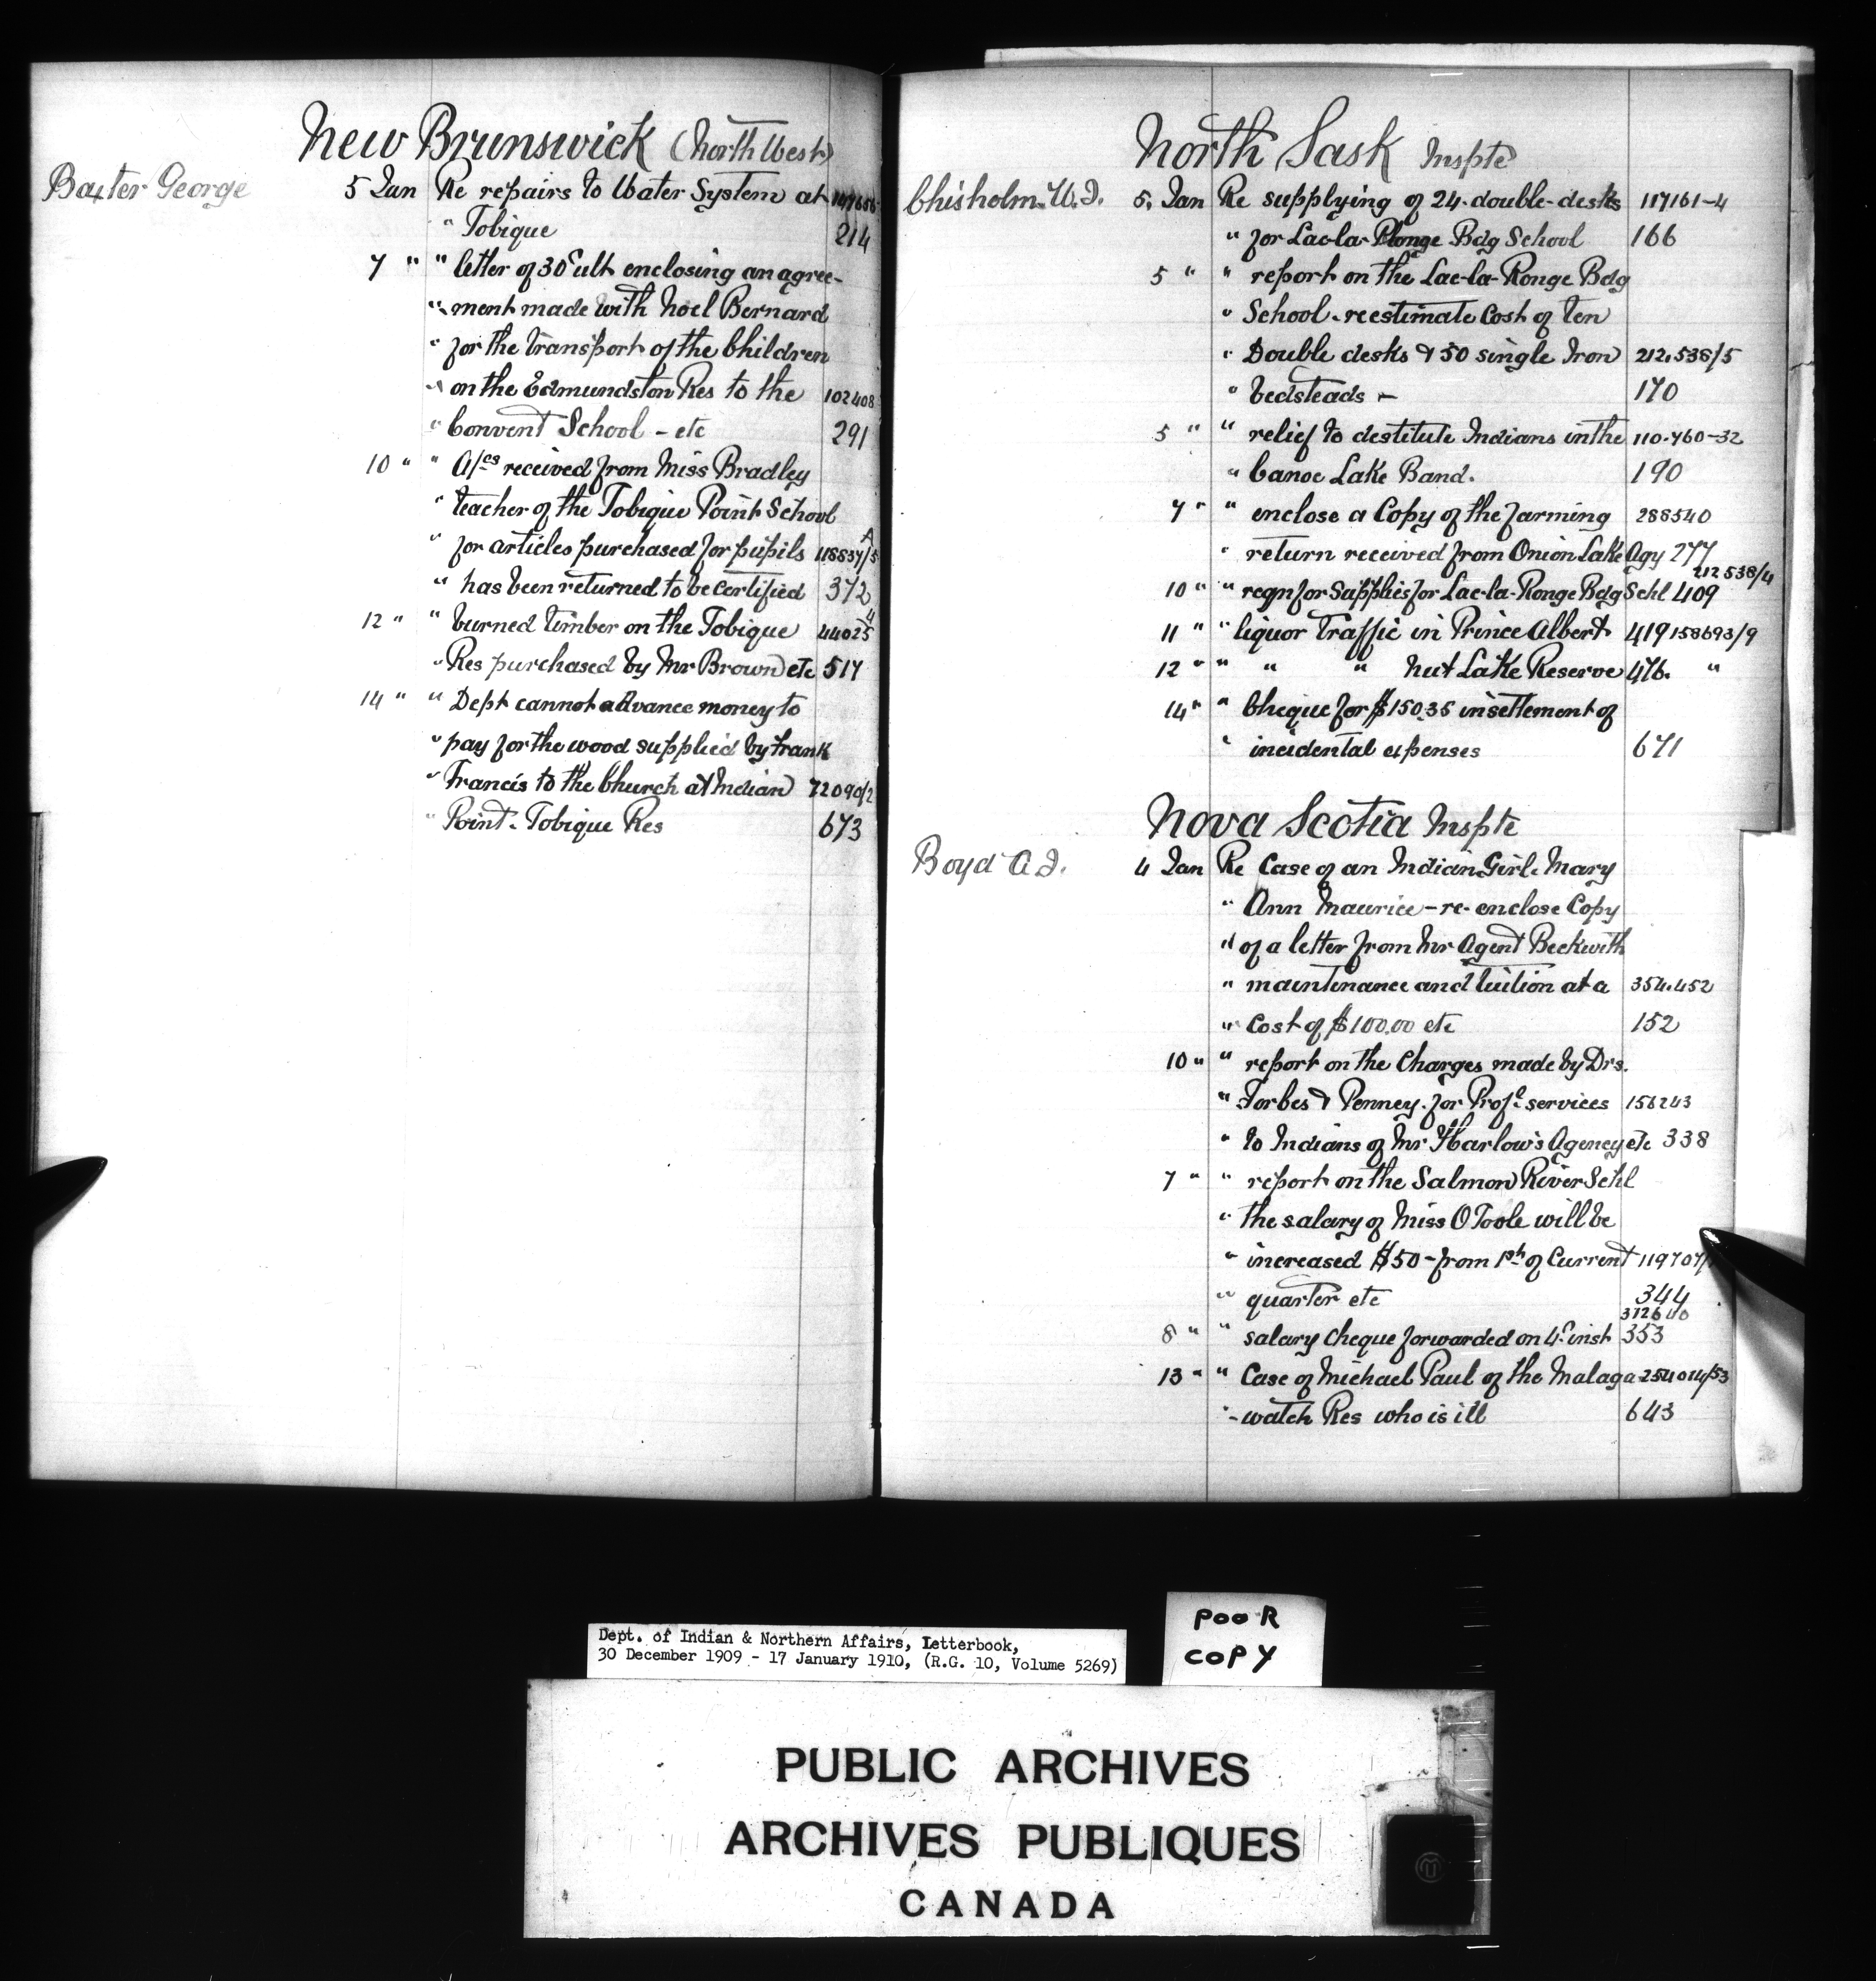 New Brunswick (North West)
Baxter George 5 Jan Re repairs to Water System at
" Tobique 214
7 " " letter of 30th ult enclosing an agree-
" ment made with Noel Bernard
" for the transport of the Children
" on the Edmundston Res to the 102408
" Convent School - etc 291
10 " " A/cs received from Miss Bradley
" teacher of the Tobique Point School
" for articles purchased for pupils 118837/5 A
" has been returned to be certified 372
12 " " burned timber on the Tobique 44025 4
" Res purchased by Mr Brown etc 517
14 " " Dept cannot advance money to
" pay for the wood supplied by Frank
" Francis to the Church at Indian 72090/2
" Point - Tobique Res 673
North Sask Inspte
Chisholm W.J. 5. Jan Re supplying of 24 double-desks 117161-4
" for Lac-la-Plonge Bdg School 166
5 " " report on the Lac-la-Ronge Bdg
" School - re estimate Cost of ten
" Double desks & 50 single Iron 212.538/5
" bedsteads - 170
5 " " relief to destitute Indians in the 110.760-32
" Canoe Lake Band. 190
7 " " enclose a Copy of the farming 288540
" return received from Onion Lake Agy 277
212538/4
10 " " reqn for Supplies for Lac-la-Ronge Bdg Schl 409
11 " " liquor Traffic in Prince Albert 419 158693/9
12 " " " " Nut Lake Reserve 476. "
14 " " Cheque for $150.35 in settlement of
" incidental expenses 671
Nova Scotia Inspte
Boyd A.J. 4 Jan Re Case of an Indian Girl. Mary
" Ann Maurice - re - enclose Copy
" of a letter from Mr Agent Beckwith
" maintenance and tuition at a 354.452
" Cost of $100.00 etc 152
10 " " report on the Charges made by Drs.
" Forbes & Penney. for Profl services 156243
" to Indians of Mr Harlow's Agency etc 338
7 " " report on the Salmon River Schl
" the salary of Miss O'Toole will be
" increased $50 - from 1st of Current 119707/
" quarter etc 344
372640
8 " " salary cheque forwarded on 4th inst 353
13 " " Case of Michael Paul of the Malaga 254014/53
" - watch Res who is ill 643
Dept. of Indian & Northern Affairs, Letterbook,
30 December 1909 - 17 January 1910, (R.G. 10, Volume 5269)
POOR
COPY
PUBLIC ARCHIVES
ARCHIVES PUBLIQUES
CANADA